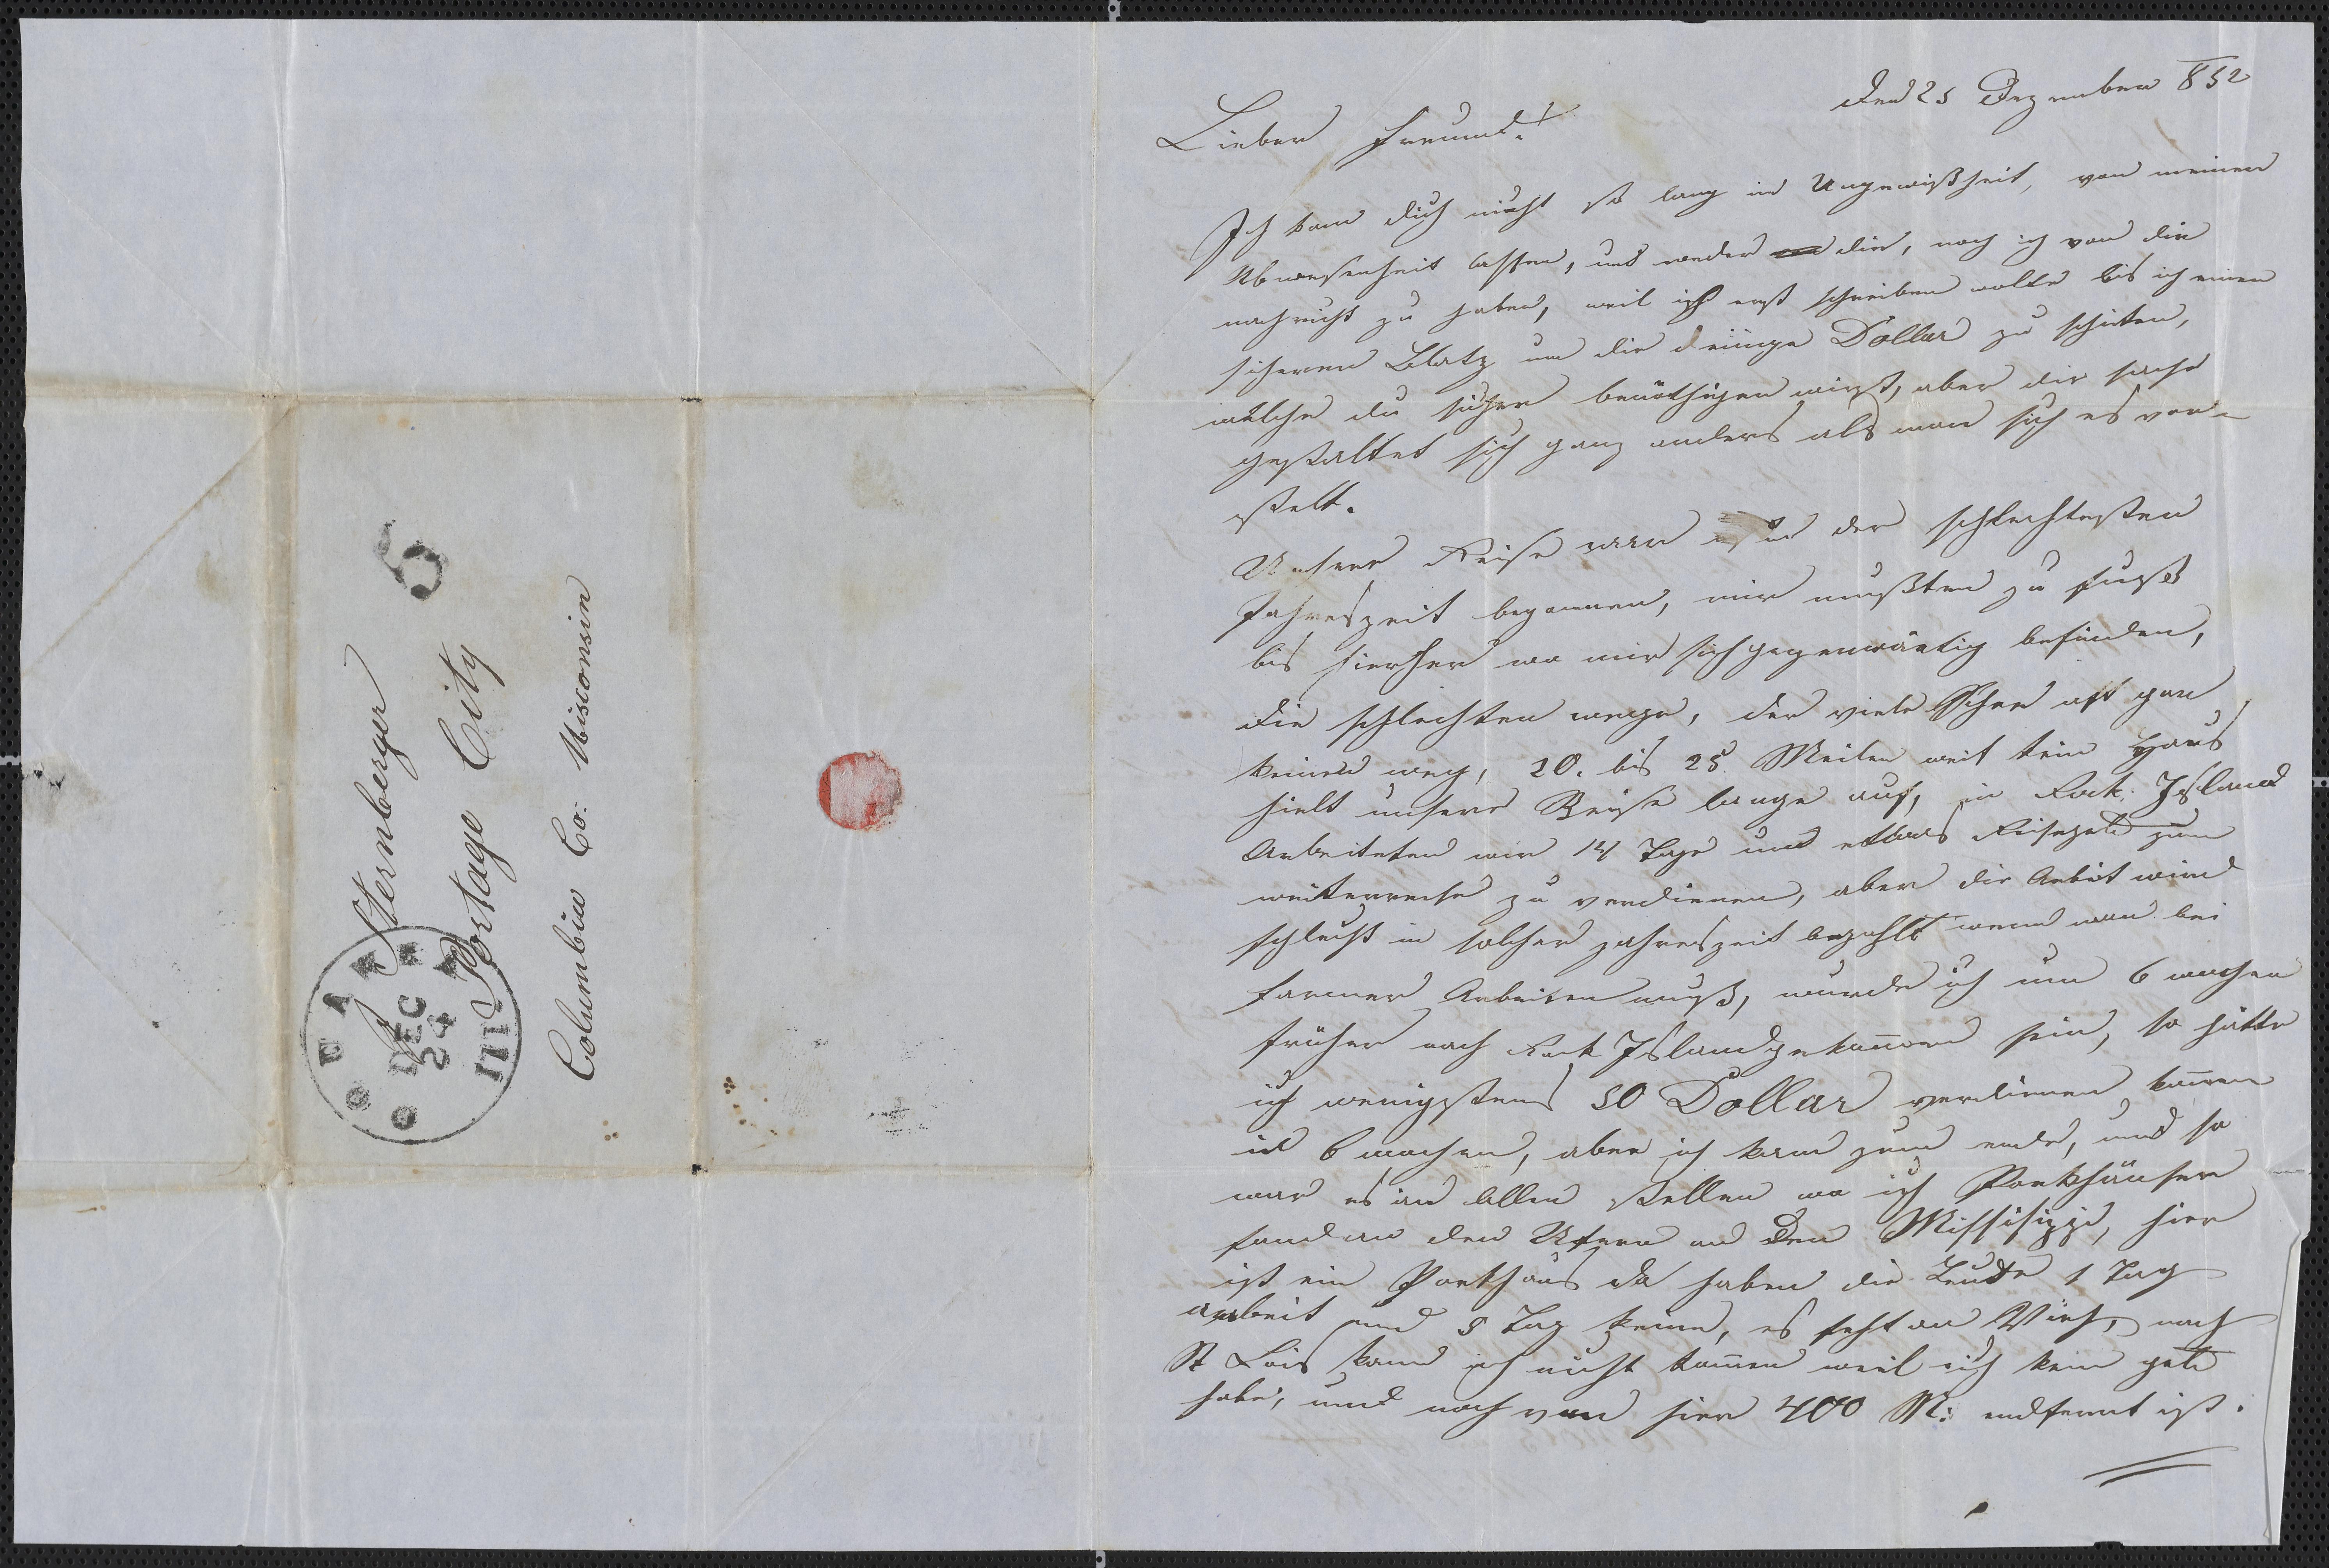 Sternberger
Portage City
Columbia Co: Wisconsin
5
OQUAWKA
DEC
24
ILL
den 25 Dezember 852
Lieber Freund!
Ich kan dich nicht so lang in Ungewißheit, von meiner
Abwesenheit lassen, und weder dir, noch ich von dir
nachricht zu haben, weil ich erst schreiben wolte bis ich einen
sicheren Blatz um dir einige Dollar zu schiken,
welche du sicher benöthigen wirst, aber die sache
gestaltet sich ganz anders als man sich es vor-
stelt.
Unsere Reise war in der schlechtesten
Jahreszeit begonnen, wir mußten zu fuß
bis hierher wo wir sich gegenwärtig befinden,
die schlechten wege, der viele Schne oft gar
keinen weg, 20. bis 25 Meilen weit kein Haus
hielt unsere Reise lange auf, in Rock: Island
Arbeiteten wir 14 Tage und etwas Reisegeld zum
weiterreise zu verdienen, aber die Arbeit wird
schlecht in solcher jahreszeit bezahlt wenn man bei
farmer Arbeiten muß, wurde ich um 6 wochen
früher nach Rock Island gekom̅en sein, so hätte
ich wenigstens 50 Dollar verdienen kön̅en
in 6 wochen, aber ich kam zum ende, und so
war es an allen stellen wo ich Porkhäuser
fand an den Ufern an den Missisippi, hier
ist ein Porkhaus da haben die Leute 1 Tag
arbeit und 5 Tag keine, es feht an Vieh, nach
St Lois kann ich nicht kom̅en weil ich kein geld
habe, und noch von hier 400 M: endfernt ist.